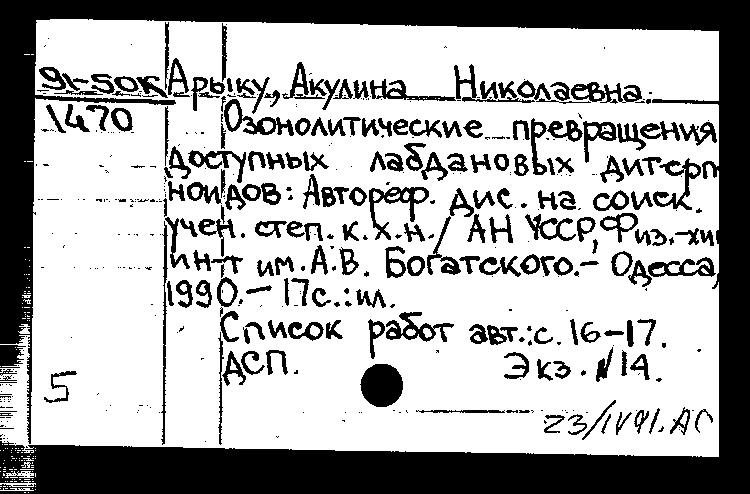 91-50К Арыку, Акулина Николаевна.
1470 Озонолитические превращения
доступных лабдановых дитерп
ноидов: Автореф. дис. на соиск.
учен. степ. к.х.н./ АН УССР, Физ.-хи
ин-т им. А.В. Богатского.- Одесса,
1990.- 17с.: ил.
Список работ авт.: с. 16-17.
ДСП. Экз. N14.
5
23/IV91. АС